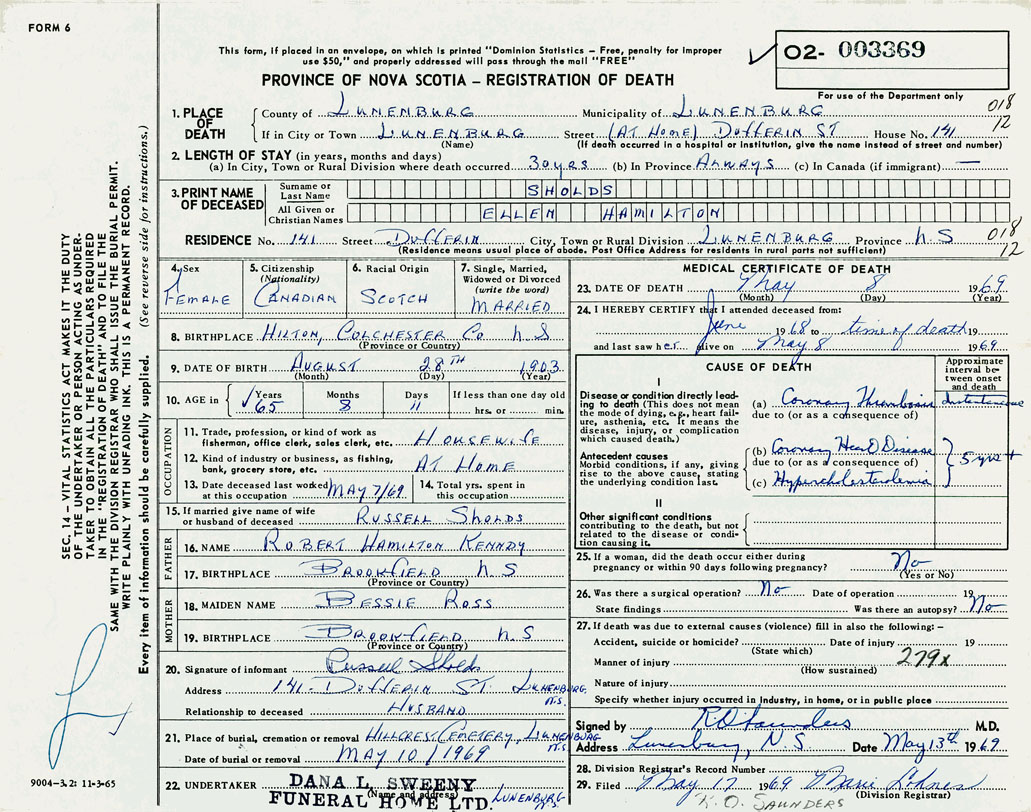 FORM 6
This form, if placed in an envelope, on which is printed "Dominion Statistics – Free, penalty for improper
use $50," and properly addressed will pass through the mail "FREE"
PROVINCE OF NOVA SCOTIA – REGISTRATION OF DEATH
02- 003369
For use of the Department only
1. PLACE OF DEATH County of LUNENBURG Municipality of LUNENBURG 018
If in City or Town LUNENBURG Street (AT HOME) DUFFERIN ST House No. 141 12
(Name) (If death occurred in a hospital or institution, give the name instead of street and number)
2. LENGTH OF STAY (in years, months and days)
(a) In City, Town or Rural Division where death occurred 30 yrs (b) In Province ALWAYS (c) In Canada (if immigrant) —
3. PRINT NAME OF DECEASED Surname or Last Name SHOLDS
All Given or Christian Names ELLEN HAMILTON
RESIDENCE No. 141 Street DUFFERIN City, Town or Rural Division LUNENBURG Province N.S 018
(Residence means usual place of abode. Post Office Address for residents in rural parts not sufficient) 12
4. Sex FEMALE
5. Citizenship (Nationality) CANADIAN
6. Racial Origin SCOTCH
7. Single, Married, Widowed or Divorced (write the word) MARRIED
8. BIRTHPLACE HILTON, COLCHESTER Co N S
(Province or Country)
9. DATE OF BIRTH AUGUST 28TH 1903
(Month) (Day) (Year)
10. AGE in Years Months Days If less than one day old
65 8 11 hrs. or min.
OCCUPATION
11. Trade, profession, or kind of work as
fisherman, office clerk, sales clerk, etc. HOUSEWIFE
12. Kind of industry or business, as fishing,
bank, grocery store, etc. AT HOME
13. Date deceased last worked at this occupation MAY 7/69 14. Total yrs. spent in this occupation
15. If married give name of wife
or husband of deceased RUSSELL SHOLDS
FATHER
16. NAME ROBERT HAMILTON KENNDY
17. BIRTHPLACE BROOKFIELD N S
(Province or Country)
MOTHER
18. MAIDEN NAME BESSIE ROSS
19. BIRTHPLACE BROOKFIELD N. S
(Province or Country)
20. Signature of informant Russell Sholds
Address 141- DUFFERIN ST. LUNENBURG, N.S.
Relationship to deceased HUSBAND
21. Place of burial, cremation or removal HILLCREST CEMETERY, LUNENBURG N.S.
Date of burial or removal MAY 10/1969
22. UNDERTAKER DANA L. SWEENY
(Name and address)
FUNERAL HOME LTD. LUNENBURG N.S.
MEDICAL CERTIFICATE OF DEATH
23. DATE OF DEATH May 8 1969
(Month) (Day) (Year)
24. I HEREBY CERTIFY that I attended deceased from:
June 1968 to time of death 19
and last saw her alive on May 8 1969
CAUSE OF DEATH
Approximate interval between onset and death
I
Disease or condition directly leading to death (This does not mean
the mode of dying, e.g., heart failure, asthenia, etc. It means the
disease, injury, or complication
which caused death.)
(a) Coronary Thrombosis
due to (or as a consequence of)
Antecedent causes
Morbid conditions, if any, giving
rise to the above cause, stating
the underlying condition last.
(b) Coronary Heart Disease
due to (or as a consequence of)
(c) Hypercholesterolemia
5 yrs +
II
Other significant conditions
contributing to the death, but not
related to the disease or condition causing it.
25. If a woman, did the death occur either during
pregnancy or within 90 days following pregnancy? No
(Yes or No)
26. Was there a surgical operation? No Date of operation 19
State findings Was there an autopsy? No
27. If death was due to external causes (violence) fill in also the following: –
Accident, suicide or homicide? Date of injury 19
(State which)
Manner of injury 279x
(How sustained)
Nature of injury
Specify whether injury occurred in industry, in home, or in public place
Signed by R O Saunders M.D.
Address Lunenburg, N.S. Date May 13th 1969
28. Division Registrar's Record Number
29. Filed May 17 1969 Marie Lohnes
(Division Registrar)
K. O. SAUNDERS
SEC. 14 – VITAL STATISTICS ACT MAKES IT THE DUTY
OF THE UNDERTAKER OR PERSON ACTING AS UNDER-
TAKER TO OBTAIN ALL THE PARTICULARS REQUIRED
IN THE "REGISTRATION OF DEATH" AND TO FILE THE
SAME WITH THE DIVISION REGISTRAR WHO SHALL ISSUE THE BURIAL PERMIT.
WRITE PLAINLY WITH UNFADING INK. THIS IS A PERMANENT RECORD.
Every item of information should be carefully supplied. (See reverse side for instructions.)
9004–3.2: 11-3-65